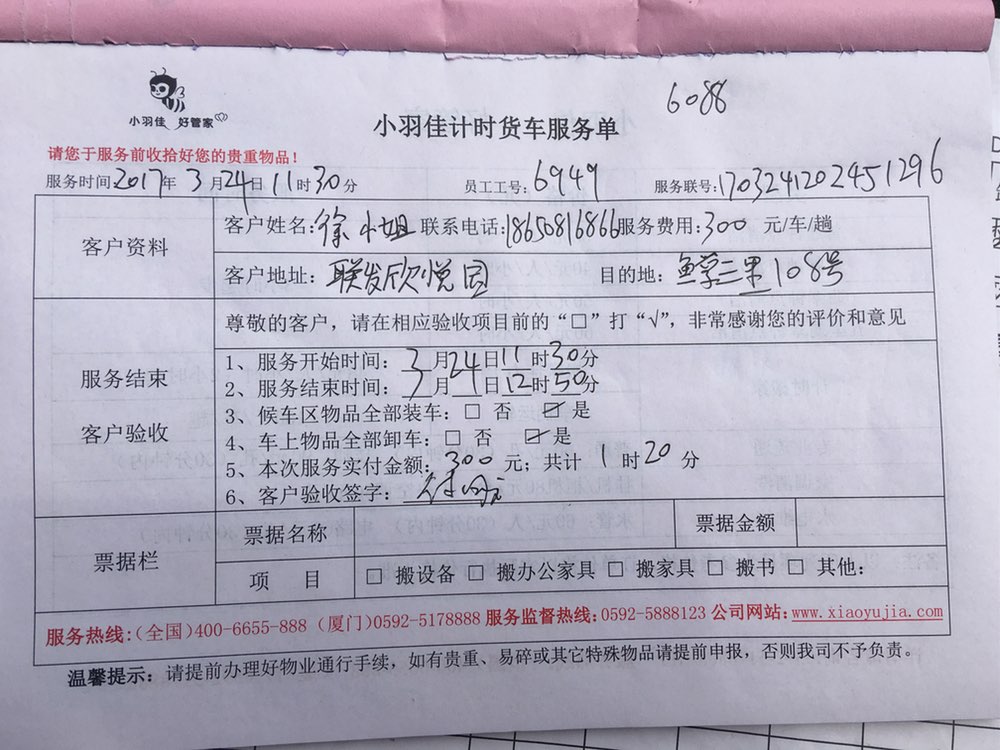 6088
小羽佳 好管家
小羽佳计时货车服务单
请您于服务前收拾好您的贵重物品！
服务时间2017年 3月24日 11时30分 员工工号：6949 服务联号：170324120245 1296
客户资料
客户姓名：徐小姐 联系电话：18650816866 服务费用：300 元/车/趟
客户地址：联发欣悦园 目的地：三里108号
尊敬的客户，请在相应验收项目前的“□”打“√”，非常感谢您的评价和意见
服务结束
客户验收
1、服务开始时间：3月24日11时30分
2、服务结束时间：3月24日12时50分
3、候车区物品全部装车：□ 否 ☑ 是
4、车上物品全部卸车：□ 否 ☑ 是
5、本次服务实付金额：300 元；共计 1 时20 分
6、客户验收签字：
票据栏
票据名称 票据金额
项 目 □ 搬设备 □ 搬办公家具 □ 搬家具 □ 搬书 □ 其他：
服务热线：（全国）400-6655-888 （厦门）0592-5178888 服务监督热线：0592-5888123 公司网站：www.xiaoyujia.com
温馨提示：请提前办理好物业通行手续，如有贵重、易碎或其它特殊物品请提前申报，否则我司不予负责。